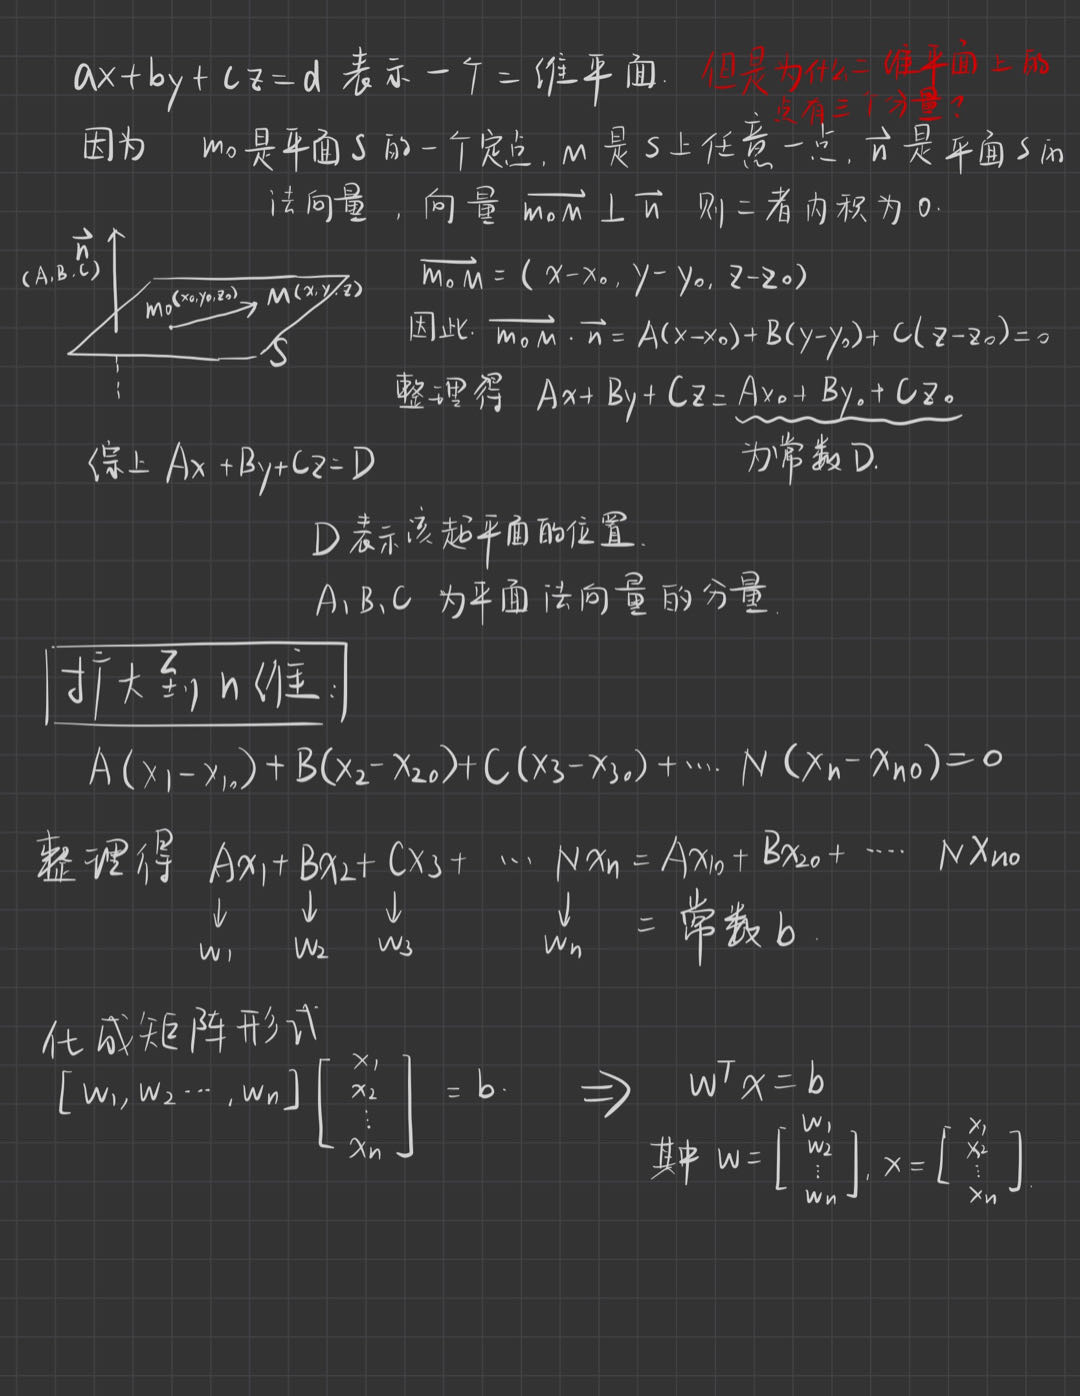 ax+by+cz=d 表示一个二维平面. 但是为什么二维平面上的
点有三个分量?
因为 m₀是平面S的一个定点, M是S上任意一点, n⃗是平面S的
法向量, 向量 m₀M⃗ ⊥ n⃗ 则二者内积为0.
n⃗
(A,B,C)
m₀(x₀,y₀,z₀) M(x,y,z)
S
m₀M⃗ = (x-x₀, y-y₀, z-z₀)
因此. m₀M⃗ · n⃗ = A(x-x₀)+B(y-y₀)+C(z-z₀)=0
整理得 Ax+By+Cz=Ax₀+By₀+Cz₀
为常数D.
综上 Ax+By+Cz=D
D表示该超平面的位置.
A、B、C 为平面法向量的分量.
扩大到n维:
A(x₁-x₁₀)+B(x₂-x₂₀)+C(x₃-x₃₀)+···· N(xₙ-xₙ₀)=0
整理得 Ax₁+Bx₂+Cx₃+ ··· Nxₙ = Ax₁₀+Bx₂₀+ ···· Nxₙ₀
↓ ↓ ↓ ↓ = 常数b.
w₁ w₂ w₃ wₙ
化成矩阵形式
[w₁, w₂ ···, wₙ] [x₁ x₂ ⋮ xₙ] = b. ⇒ wᵀx=b
其中 w=[w₁ w₂ ⋮ wₙ], x=[x₁ x₂ ⋮ xₙ].